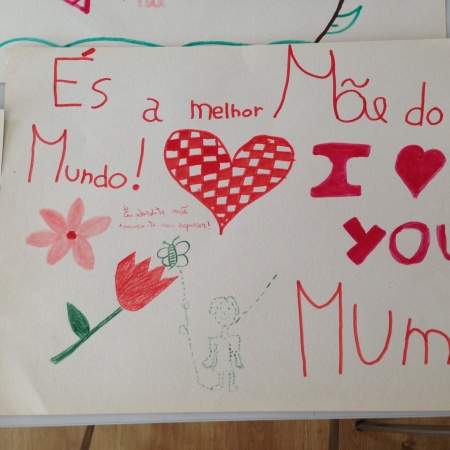 És a melhor Mãe do
Mundo!
I
YOU
Mum